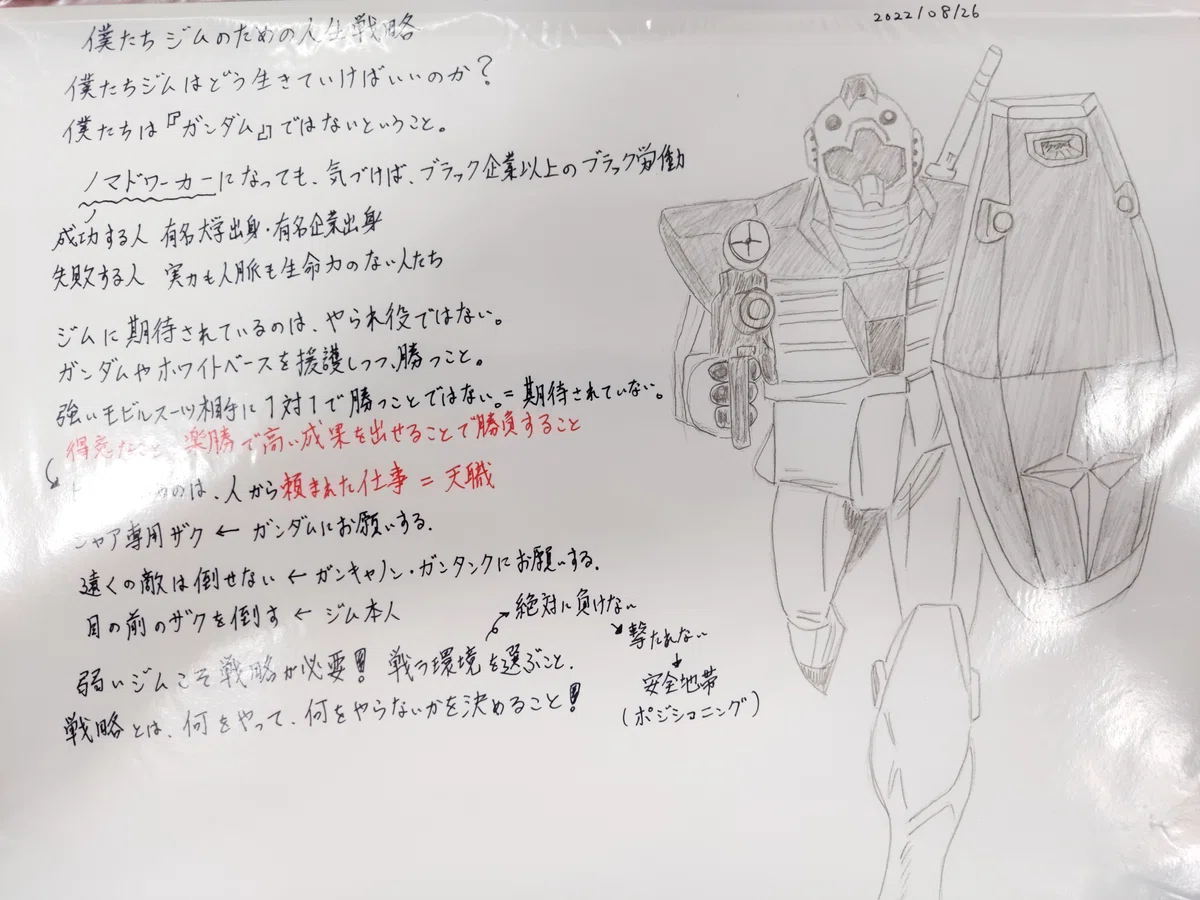 2022/08/26
僕たちジムのための人生戦略
僕たちジムはどう生きていけばいいのか?
僕たちは『ガンダム』ではないということ。
ノマドワーカーになっても、気づけば、ブラック企業以上のブラック労働
成功する人 有名大学出身・有名企業出身
失敗する人 実力も人脈も生命力のない人たち
ジムに期待されているのは、やられ役ではない。
ガンダムやホワイトベースを援護しつつ、勝つこと。
強いモビルスーツ相手に1対1で勝つことではない。=期待されていない。
得意なこと、楽勝で高い成果を出せることで勝負すること
のは、人から頼まれた仕事 = 天職
シャア専用ザク ← ガンダムにお願いする.
遠くの敵は倒せない ← ガンキャノン・ガンタンクにお願いする.
目の前のザクを倒す ← ジム本人
絶対に負けない
撃たれない
弱いジムこそ戦略が必要! 戦う環境を選ぶこと.
安全地帯
(ポジショニング)
戦略とは、何をやって、何をやらないかを決めること!